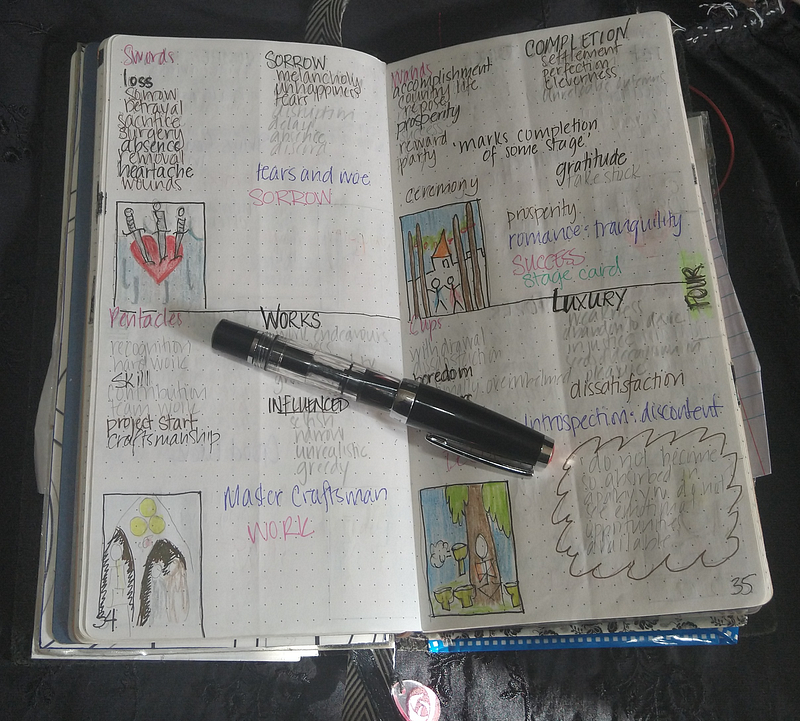 Swords
loss
sorrow
betrayal
sacrifice
surgery
absence
removal
heartache
wounds
SORROW
melancholy
unhappiness
tears
disruption
delay
absence
discord
tears and woe
SORROW
Pentacles
recognition
hard work
skill
contribution
team work
project start
craftsmanship
WORKS
INFLUENCED
selfish
narrow
unrealistic
greedy
Master Craftsman
WORK
34
Wands
accomplishment
country life
repose
prosperity
reward
party
ceremony
COMPLETION
settlement
perfection
cleverness
"marks completion
of some stage"
gratitude
take stock
prosperity
romance: tranquility
SUCCESS
stage card
FOUR
Cups
withdrawal
boredom
LUXURY
dissatisfaction
introspection: discontent
do not become
so absorbed in
available
35